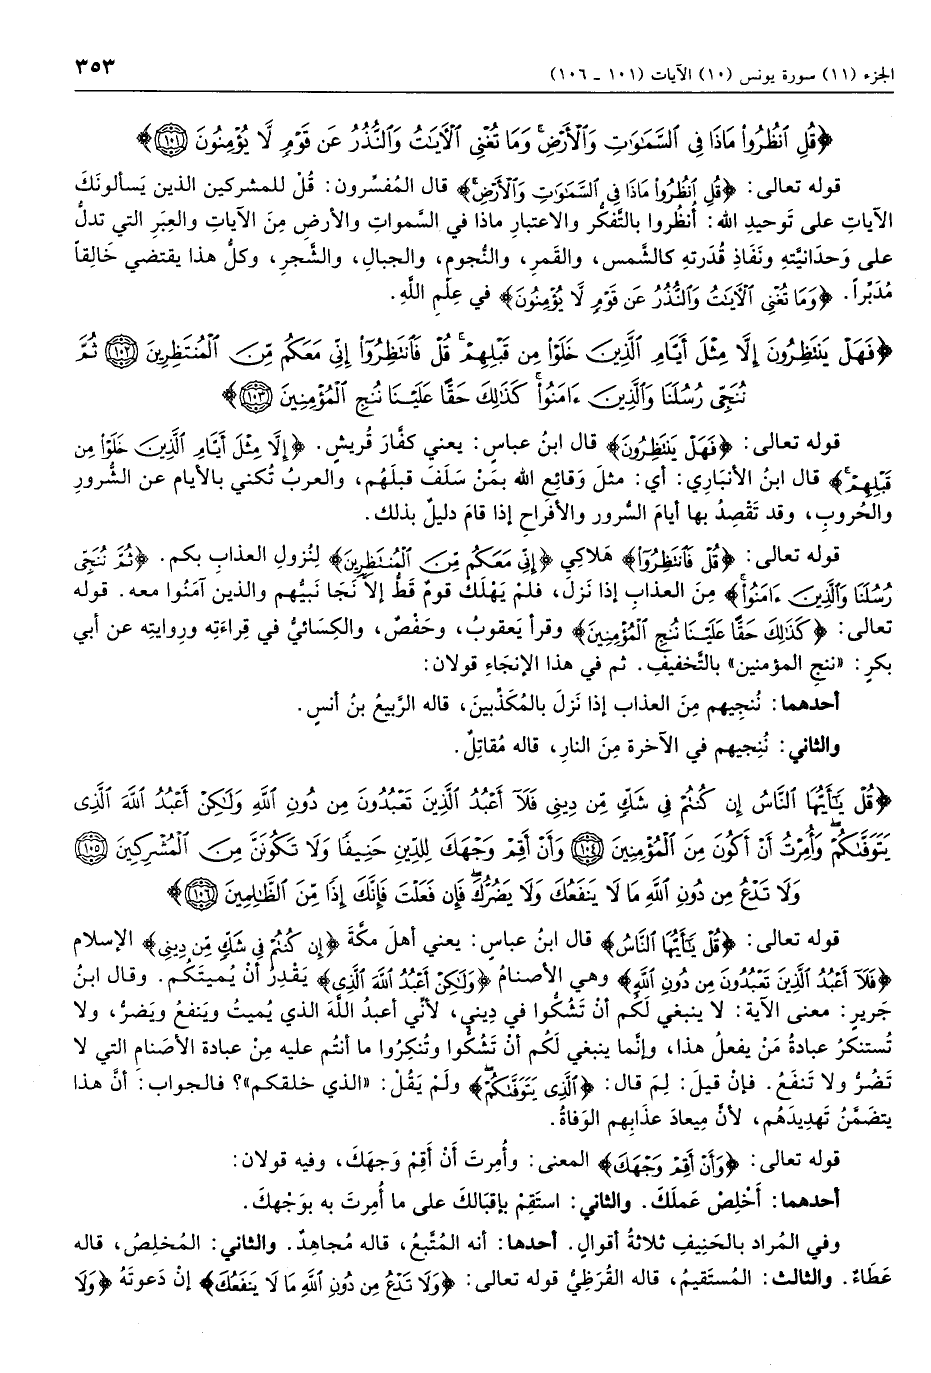 الجزء (١١) سورة يونس (١٠) الآيات (١٠١ - ١٠٦) ٣٥٣
﴿قُلِ ٱنظُرُواْ مَاذَا فِى ٱلسَّمَٰوَٰتِ وَٱلْأَرْضِۚ وَمَا تُغْنِى ٱلْأٓيَٰتُ وَٱلنُّذُرُ عَن قَوْمٍ لَّا يُؤْمِنُونَ ١٠١﴾
قوله تعالى: ﴿قُلِ ٱنظُرُواْ مَاذَا فِى ٱلسَّمَٰوَٰتِ وَٱلْأَرْضِۚ﴾ قال المُفسِّرون: قُلْ للمشركين الذين يَسألونَكَ
الآياتِ على تَوحيدِ الله: أُنظُروا بالتَّفكُّر والاعتبارِ ماذا في السَّموات والأرضِ مِنَ الآياتِ والعِبَرِ التي تدلُّ
على وَحدَانيَّتِه ونَفَاذِ قُدَرتِه كالشَّمس، والقَمرِ، والنُّجوم، والجبالِ، والشَّجرِ، وكلُّ هذا يقتضي خَالِقاً
مُدَبِّراً. ﴿وَمَا تُغْنِى ٱلْأٓيَٰتُ وَٱلنُّذُرُ عَن قَوْمٍ لَّا يُؤْمِنُونَ﴾ في عِلْمِ اللَّهِ.
﴿فَهَلْ يَنتَظِرُونَ إِلَّا مِثْلَ أَيَّامِ ٱلَّذِينَ خَلَوْاْ مِن قَبْلِهِمْۚ قُلْ فَٱنتَظِرُوٓاْ إِنِّى مَعَكُم مِّنَ ٱلْمُنتَظِرِينَ ١٠٢ ثُمَّ
نُنَجِّى رُسُلَنَا وَٱلَّذِينَ ءَامَنُواْۚ كَذَٰلِكَ حَقًّا عَلَيْنَا نُنجِ ٱلْمُؤْمِنِينَ ١٠٣﴾
قوله تعالى: ﴿فَهَلْ يَنتَظِرُونَ﴾ قال ابنُ عباس: يعني كفَّارَ قُريشٍ. ﴿إِلَّا مِثْلَ أَيَّامِ ٱلَّذِينَ خَلَوْاْ مِن
قَبْلِهِمْۚ﴾ قال ابنُ الأنبَاري: أي: مثلَ وَقائعِ الله بمَنْ سَلَفَ قبلَهُم، والعربُ تُكني بالأيام عن الشُّرورِ
والحُروبِ، وقد تَقْصِدُ بها أيامَ السُّرور والأفراحِ إذا قامَ دليلٌ بذلك.
قوله تعالى: ﴿قُلْ فَٱنتَظِرُوٓاْ﴾ هَلاكِي ﴿إِنِّى مَعَكُم مِّنَ ٱلْمُنتَظِرِينَ﴾ لِنُزولِ العذاب بكم. ﴿ثُمَّ نُنَجِّى
رُسُلَنَا وَٱلَّذِينَ ءَامَنُواْۚ﴾ مِنَ العذاب إذا نزلَ، فلمْ يَهْلَكْ قومٌ قَطُّ إلاَّ نَجَا نَبيُّهم والذين آمَنُوا معه. قوله
تعالى: ﴿كَذَٰلِكَ حَقًّا عَلَيْنَا نُنجِ ٱلْمُؤْمِنِينَ﴾ وقرأ يَعقوبُ، وحَفْصٌ، والكِسَائيُّ في قِراءَتِه ورِوايتِه عن أبي
بكرٍ: «ننجِ المؤمنين» بالتَّخفيفِ. ثم في هذا الإنجَاءِ قولان:
أحدهما: نُنجِيهم مِنَ العذاب إذا نَزلَ بالمُكَذِّبينَ، قاله الرَّبيعُ بنُ أنسٍ.
والثاني: نُنجِيهم في الآخرة مِنَ النارِ، قاله مُقاتِلٌ.
﴿قُلْ يَٰٓأَيُّهَا ٱلنَّاسُ إِن كُنتُمْ فِى شَكٍّ مِّن دِينِى فَلَآ أَعْبُدُ ٱلَّذِينَ تَعْبُدُونَ مِن دُونِ ٱللَّهِ وَلَٰكِنْ أَعْبُدُ ٱللَّهَ ٱلَّذِى
يَتَوَفَّىٰكُمْۖ وَأُمِرْتُ أَنْ أَكُونَ مِنَ ٱلْمُؤْمِنِينَ ١٠٤ وَأَنْ أَقِمْ وَجْهَكَ لِلدِّينِ حَنِيفًا وَلَا تَكُونَنَّ مِنَ ٱلْمُشْرِكِينَ ١٠٥
وَلَا تَدْعُ مِن دُونِ ٱللَّهِ مَا لَا يَنفَعُكَ وَلَا يَضُرُّكَۖ فَإِن فَعَلْتَ فَإِنَّكَ إِذًا مِّنَ ٱلظَّٰلِمِينَ ١٠٦﴾
قوله تعالى: ﴿قُلْ يَٰٓأَيُّهَا ٱلنَّاسُ﴾ قال ابنُ عباس: يعني أهلَ مكَّةَ ﴿إِن كُنتُمْ فِى شَكٍّ مِّن دِينِى﴾ الإسلام
﴿فَلَآ أَعْبُدُ ٱلَّذِينَ تَعْبُدُونَ مِن دُونِ ٱللَّهِ﴾ وهي الأصنامُ ﴿وَلَٰكِنْ أَعْبُدُ ٱللَّهَ ٱلَّذِى﴾ يَقْدِرُ أنْ يُميتَكُم. وقال ابنُ
جَريرٍ: معنى الآية: لا ينبغي لَكُم أنْ تَشُكُّوا في دِيني، لأنِّي أعبدُ اللَّهَ الذي يُميتُ ويَنفعُ ويَضرُّ، ولا
تُستنكرُ عبادةُ مَنْ يفعلُ هذا، وإنَّما ينبغي لَكُم أنْ تَشُكُّوا وتُنكِرُوا ما أنتُم عليه مِنْ عبادة الأصْنامِ التي لا
تَضُرُّ ولا تَنفَعُ. فإنْ قيلَ: لِمَ قال: ﴿ٱلَّذِى يَتَوَفَّىٰكُمْۖ﴾ ولَمْ يَقُلْ: «الذي خلقكم»؟ فالجواب: أنَّ هذا
يتضَمَّنُ تَهديدَهُم، لأنَّ مِيعادَ عذَابِهم الوَفاةُ.
قوله تعالى: ﴿وَأَنْ أَقِمْ وَجْهَكَ﴾ المعنى: وأُمِرتَ أنْ أقِمْ وَجهَكَ، وفيه قولان:
أحدهما: أَخْلِصْ عَملَكَ. والثاني: استَقِمْ بإقبَالكَ على ما أُمِرتَ به بوَجْهِكَ.
وفي المُراد بالحَنِيفِ ثلاثةُ أقوالٍ. أحدها: أنه المُتَّبِعُ، قاله مُجاهِدٌ. والثاني: المُخلِصُ، قاله
عَطَاءٌ. والثالث: المُستَقيمُ، قاله القُرَظِيُّ قوله تعالى: ﴿وَلَا تَدْعُ مِن دُونِ ٱللَّهِ مَا لَا يَنفَعُكَ﴾ إنْ دَعوتَهُ ﴿وَلَا